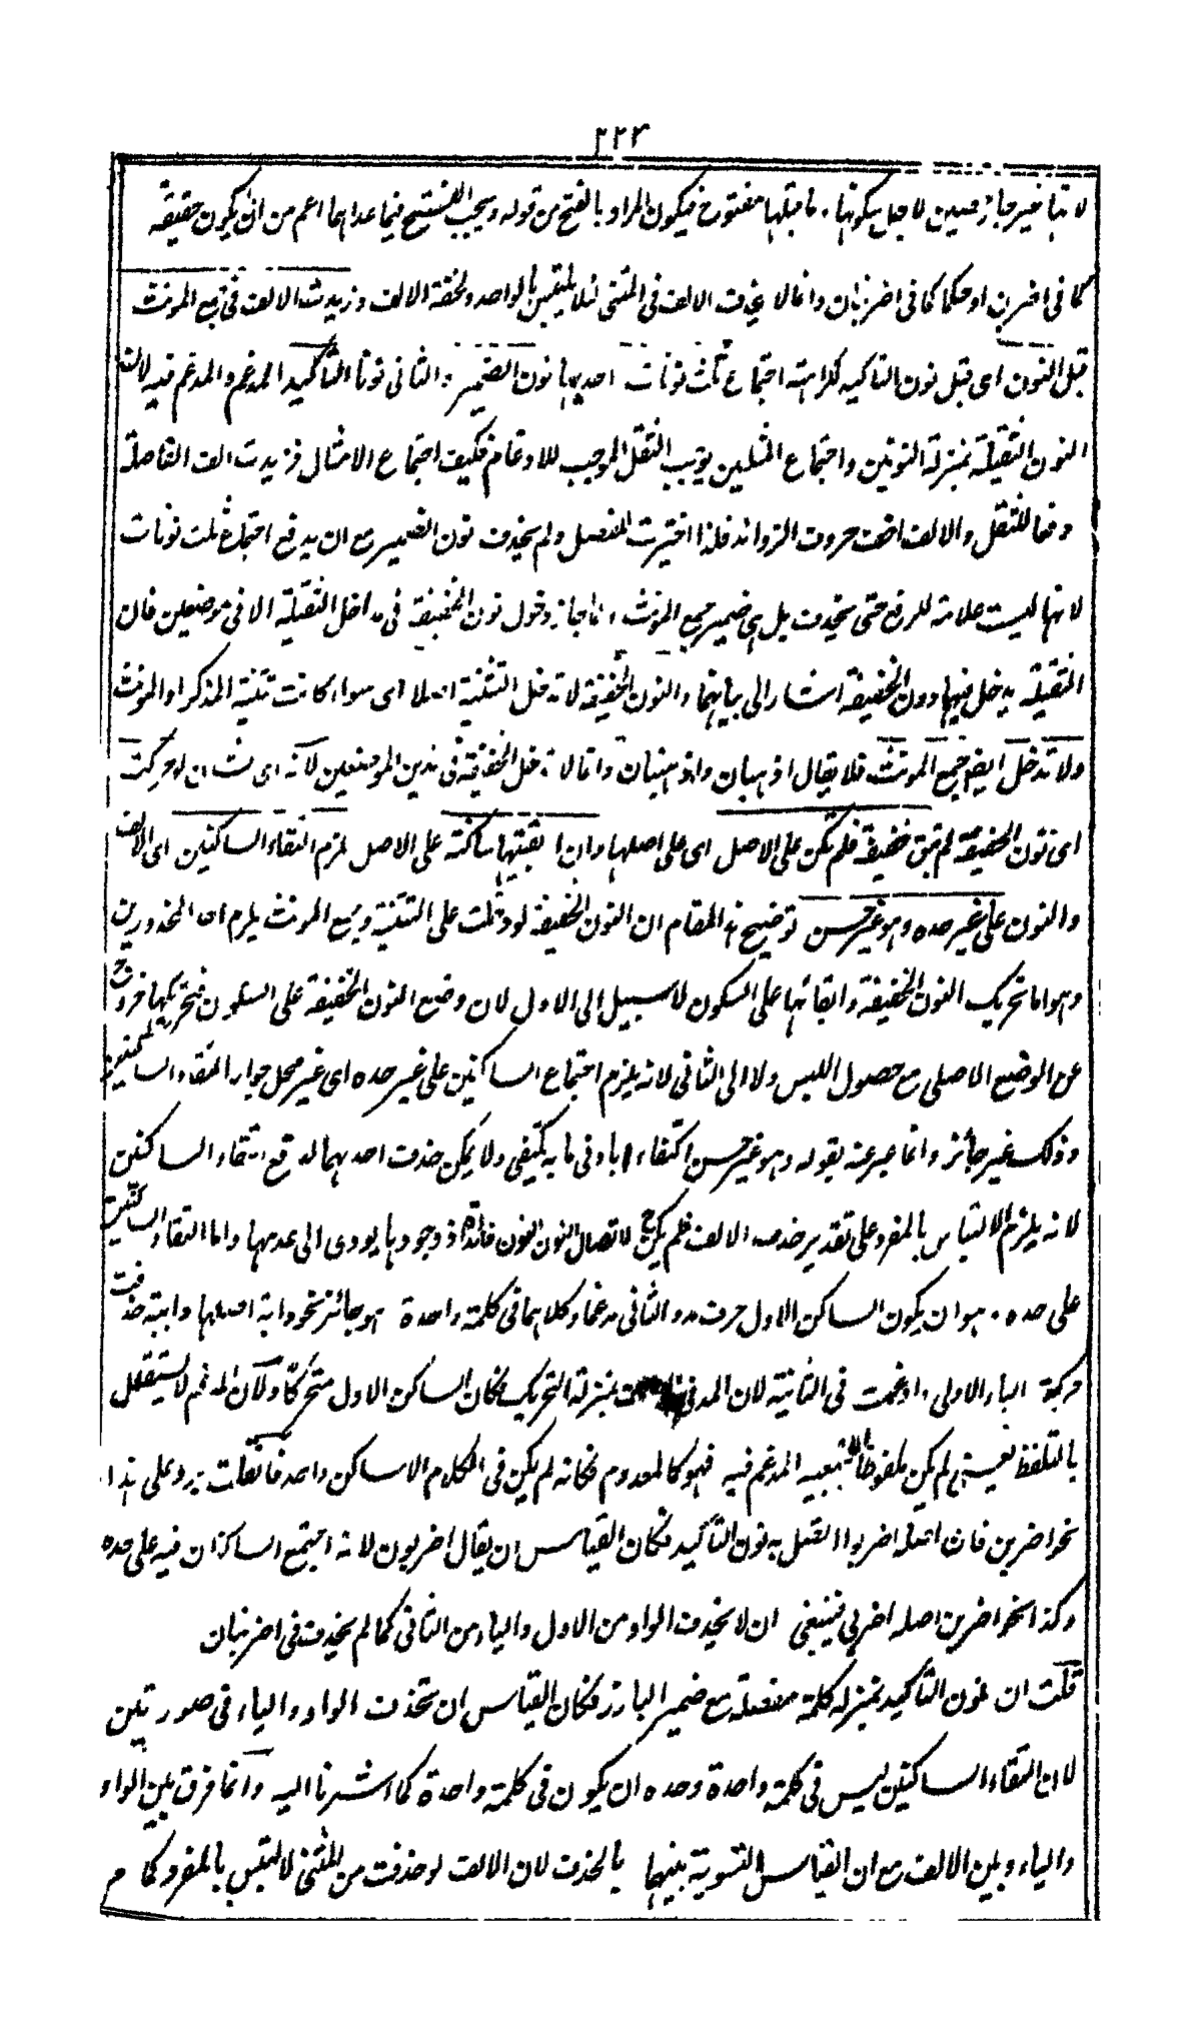 ٢٢٣
لانها غير حاجز حصين لاجل سكونها. ما قبلها مفتوح فيكون المراد بالفتح من قوله ويجب الفتح فيما عداهما اعم من ان يكون حقيقة
كما فى اضربن او حكما كما فى اضربان وانما لا يحذف الالف فى المثنى لئلا يلتبس بالواحد ولخفة الالف وزيدت الالف فى جمع المونث
قبل النون اى قبل نون التاكيد كراهته اجتماع ثلث نونات احديها نون الضمير والثانى نونا التأكيد المدغم والمدغم فيه لان
النون الثقيلة بمنزلة النونين واجتماع المثلين يوجب الثقل الموجب للادغام فكيف اجتماع الامثال فزيدت الف الفاصلة
دفعا للثقل والالف اخف حروف الزوائد فلذا اختيرت للفصل ولم يحذف نون الضمير مع ان يدفع اجتماع ثلث نونات
لانها ليست علامة للرفع حتى يحذف بل هى ضمير جمع المونث ولما جاز دخول نون الخفيفة فى مداخل الثقيلة الا فى موضعين فان
الثقيلة يدخل فيهما دون الخفيفة اشار الى بيانهما والنون الخفيفة لا تدخل التثنية اصلا اى سواء كانت تثنية المذكر او المونث
ولا تدخل ايضا جمع المونث فلا يقال اذهبان واذهبنان وانما لا تدخل الخفيفة فى هذين الموضعين لانه اى شان لو حركت
اى نون الخفيفة لم تبق خفيفة فلم تكن على الاصل اى على اصلها وان ابقيتها ساكنة على الاصل لزم التقاء الساكنين اى الالف
والنون على غير حده وهو غير حسن توضيح هذا المقام ان النون الخفيفة لو دخلت على التثنية وجمع المونث يلزم احد المحذورين
وهو اما تحريك النون الخفيفة وابقائها على السكون لا سبيل الى الاول لان وضع النون الخفيفة على السكون فتحريكها خروج
عن الوضع الاصلى مع حصول اللبس ولا الى الثانى لانه يلزم اجتماع الساكنين على غير حده اى غير محل جواز التقاء الساكنين
وذلك غير جائز وانما عبر عنه بقوله وهو غير حسن اكتفاء بادنى ما به يكتفى ولا يمكن حذف احدهما لدفع التقاء الساكنين
لانه يلزم الالتباس بالمفرد على تقدير حذف الالف فلم يكن ح لاتصال النون النون فائدة اذ وجودها يودى الى عدمها واما التقاء الساكنين
على حده. هو ان يكون الساكن الاول حرف مد والثانى مدغما وكلاهما فى كلمة واحدة هو جائز نحو دابة اصلها دابة حذفت
حركة الباء الاولى وادغمت فى الثانية لان المد بمنزلة التحريك فكان الساكن الاول متحركا ولان المدغم لا يستقل
بالتلفظ يعنى لم يكن ملفوظا الا بتبعية المدغم فيه فهو كالمعدوم فكانه لم يكن فى الكلام الا ساكن واحد فان قلت يرد على هذا
نحو اضربن فان اصله اضربوا اتصل به نون التأكيد فكان القياس ان يقال اضربون لانه اجتمع الساكنان فيه على حده
وكذا نحو اضربن اصله اضربى فينبغى ان لا يحذف الواو من الاول والياء من الثانى كما لم يحذف فى اضربان
قلت ان نون التأكيد بمنزلة كلمة منفصلة مع ضمير البارز فكان القياس ان تحذف الواو والياء فى صورتين
لان التقاء الساكنين ليس فى كلمة واحدة وحده ان يكون فى كلمة واحدة كما اشرنا اليه وانما فرق بين الواو
والياء وبين الالف مع ان القياس التسوية بينهما بالحذف لان الالف لو حذفت من المثنى لالتبس بالمفرد كما م